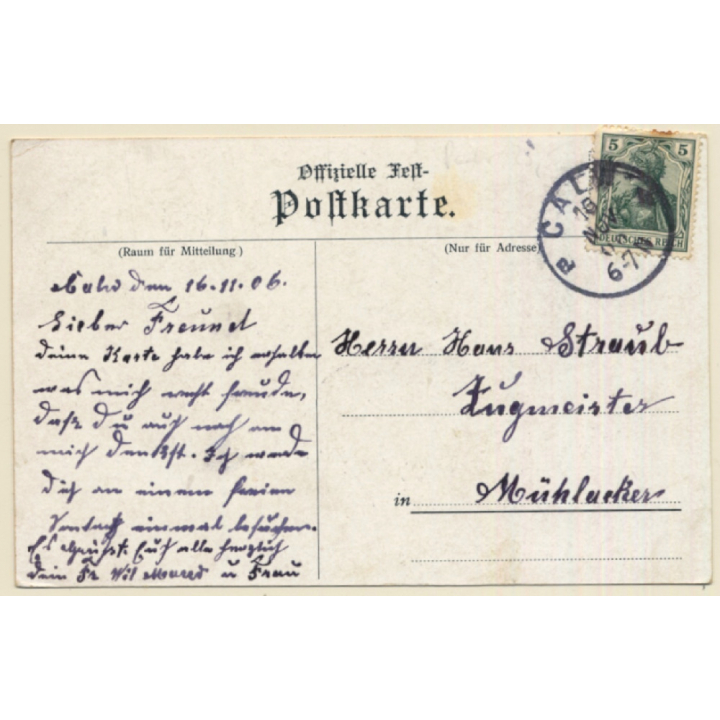 Offizielle Fest-
Postkarte.
(Raum für Mitteilung)
(Nur für Adresse)
5 5
DEUTSCHES REICH
CALW
16 NOV
6-7N
Calw den 16.11.06.
Lieber Freund
deine Karte habe ich erhalten
was mich recht freude,
daß du auch noch an
mich denkst. Ich werde
dich an einem freien
Sontag einmal besuchen.
Es grüßt Euch alle herzlich
dein Fr. Wil u Frau
Herrn Hans Straub
Zugmeister
in Mühlacker